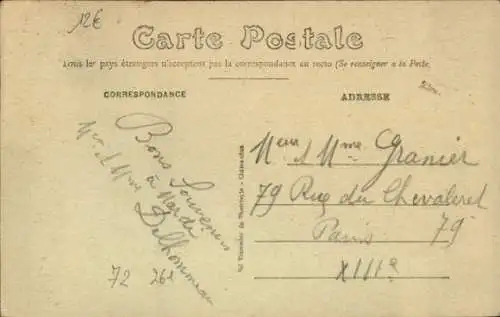 12€
Carte Postale
Tous les pays étrangers n'acceptent pas la correspondance au recto (Se renseigner à la Poste)
CORRESPONDANCE
ADRESSE
Bons Souvenirs
à Mardi
Mr & Mme Delhommeau
72 26
Meur & Mme Granier
79 Rue du Chevaleret 79
Paris
XIIIe